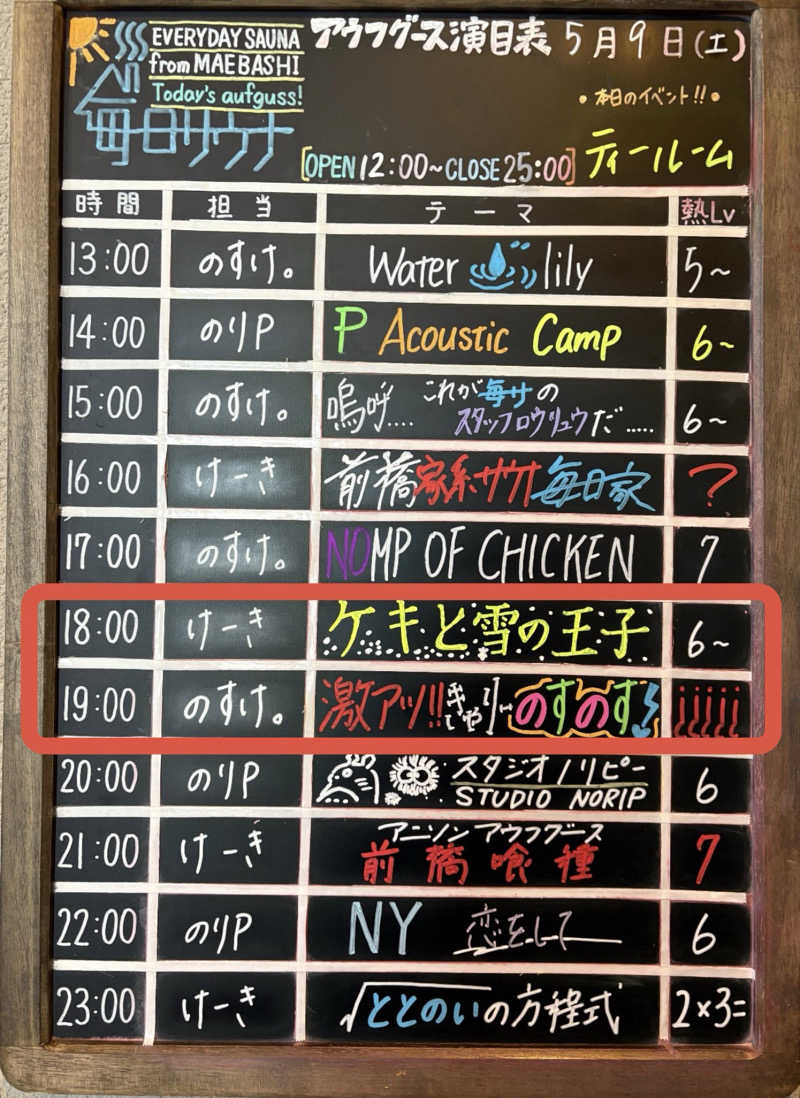 EVERYDAY SAUNA
from MAEBASHI
Today's aufguss!
毎日サウナ
アウフグース演目表 5月9日(土)
•本日のイベント!!•
[OPEN 12:00~CLOSE 25:00] ティールーム
時間 担当 テーマ 熱Lv
13:00 のすけ。 Water lily 5~
14:00 のりP P Acoustic Camp 6~
15:00 のすけ。 嗚呼.... これが毎サの
スタッフロウリュウだ..... 6~
16:00 けーき 前橋家系サウナ毎日家 ?
17:00 のすけ。 NOMP OF CHICKEN 7
18:00 けーき ケキと雪の王子 6~
19:00 のすけ。 激アツ!! きゃりーのすのす
20:00 のりP スタジオノリピー
STUDIO NORIP 6
21:00 けーき アニソン アウフグース
前橋喰種 7
22:00 のりP NY 恋をして 6
23:00 けーき √ととのいの方程式 2×3=